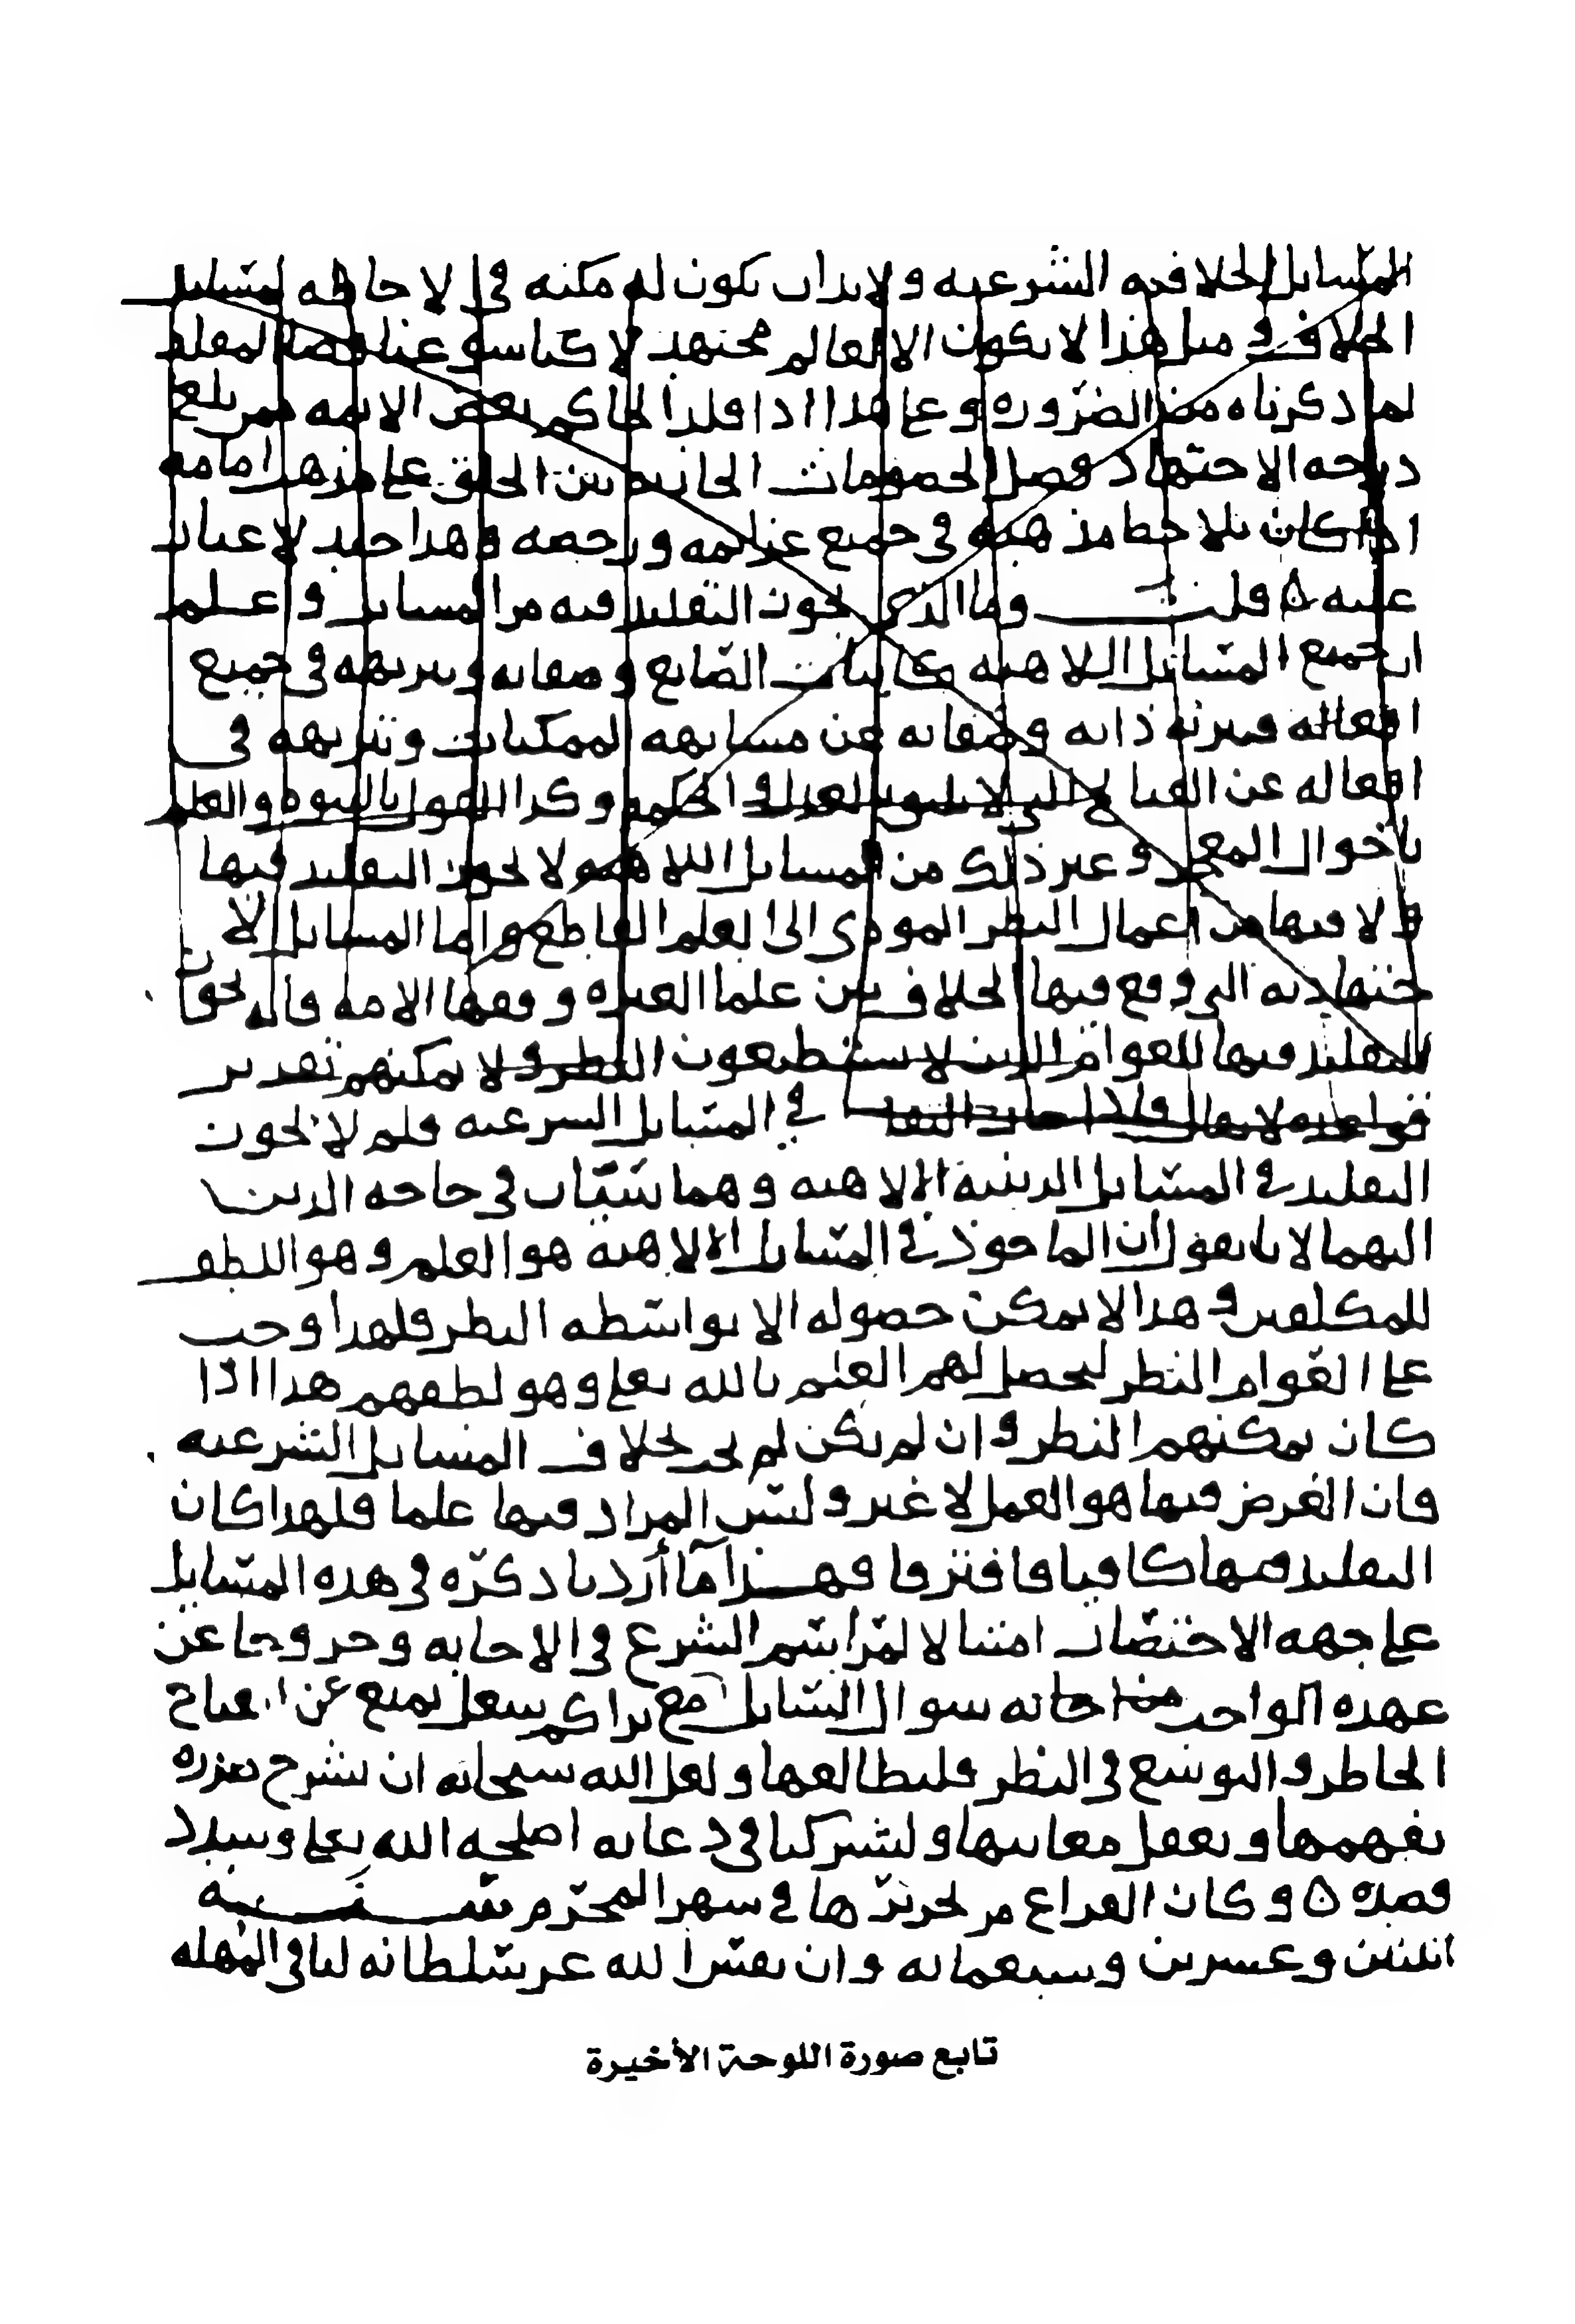 المسائل الخلافيه الشرعيه ولا بد ان يكون له مكنه في الاحاطه لمسايل
الخلاف و مثل هذا لا يكون الا لعالم مجتهد
لما ذكرناه من الضروره وعلى هذا اذا قلد الحاكم بعض الائمه ممن بلغ
درجه الاجتهاد وفصل الخصومات الجاريه بين الخلق على مذهب امامه
اذا كان يلاحظ مذهبه في جميع عزائمه ورخصه وهذا جيد لا غبار
عليه ٥ قلت وما الذي يجوز التقليد فيه من المسايل و اعلم
ان جميع المسايل الالاهيه كاثبات الصانع وصفاته وتنزيهه في جميع
افعاله ذاته وصفاته عن مشابهه الممكنات وتنزيهه في
افعاله عن القبايح التي لا تليق بالعدل والحكمه وكذا القول بالنبوه والعلم
باحوال المعاد وغير ذلك من المسايل الالاهيه لا يجوز التقليد فيها
ولا بد فيها من اعمال النظر المودي الى العلم القاطع واما المسايل الا
جتهاديه التي وقع فيها الخلاف بين علما العتره وفقها الامه فانه يجوز
التقليد فيها للعوام الذين لا يستطيعون النظر ولا يمكنهم تقدير
قواعده لا يقال فاذا جاز التقليد في المسايل الشرعيه فلم لا يجوز
التقليد في المسايل الدينيه الالاهيه وهما سيان في حاجه الدين
اليهما لانا نقول ان الماخوذ في المسايل الالاهيه هو العلم وهو اللطف
للمكلفين وهذا لا يمكن حصوله الا بواسطه النظر فلهذا وجب
على العوام النظر ليحصل لهم العلم بالله تعلى وهو لطفهم هذا اذا
كان يمكنهم النظر وان لم يكن لم يجز بخلاف المسايل الشرعيه
فان الغرض فيها هو العمل لا غير وليس المراد فيها علما فلهذا كان
التقليد فيها كافيا فافترقا فهذا ما أردنا ذكره في هذه المسايل
على جهه الاختصار امتثالا لمراسم الشرع في الاجابه وخروجا عن
عهده الواجب من اجابه سوال السايل مع تراكم شغل يمنع عن انفتاح
الخاطر والتوسع في النظر فليطالعها ولعل الله سبحانه ان يشرح صدره
بفهمها وتعقل معانيها وليشركنا في دعائه اصلحه الله تعلى وسدد
قصده ٥ وكان الفراغ من تحريرها في شهر المحرم سنه
اثنتين وعشرين وسبعمائه وان يفسر الله عز سلطانه لنا في المهله
تابع صورة اللوحة الأخيرة